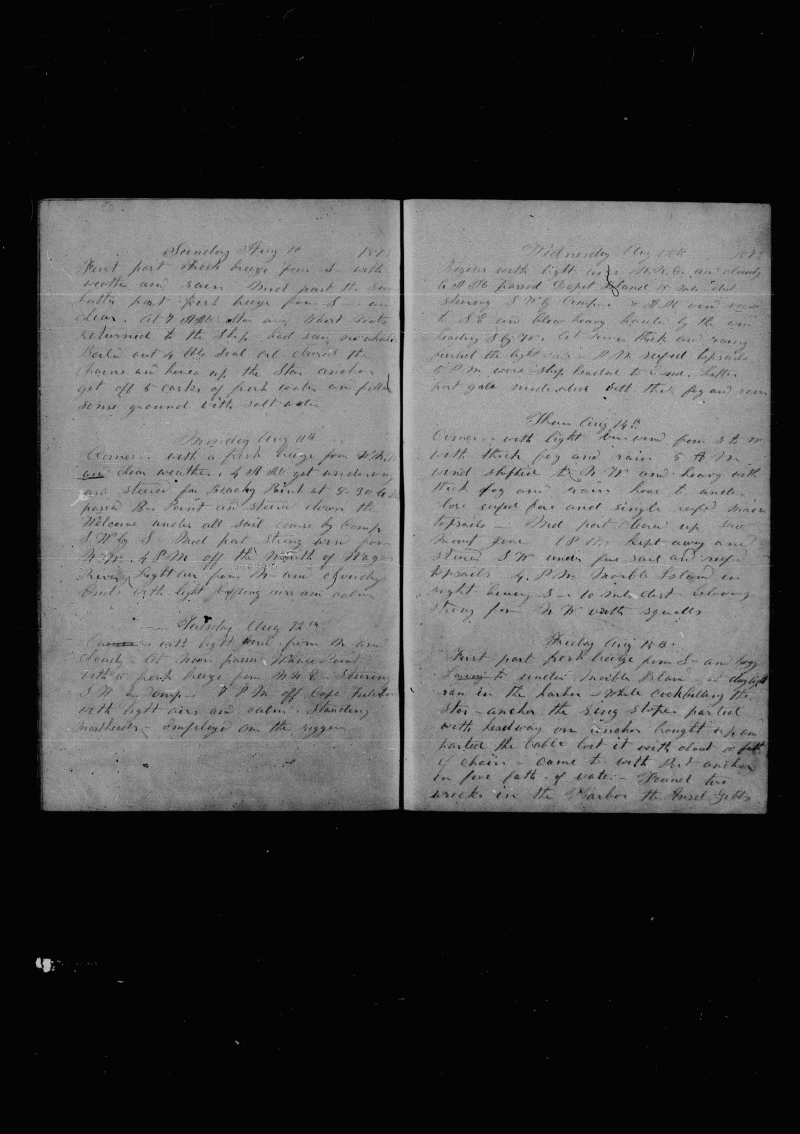 Sunday Aug 10 187
First part fresh breeze from S - with
weather and rain Mid part the
latter part fresh breeze from S - an
clear. At 7 AM Star and Waist boats
returned to the Ship had seen no whale
Boild out 4 Bbls Seal Oil cleared the
Chains and hove up the Star anchor
get off 5 casks of fresh water an filled
some ground with salt water
Monday Aug 11th
Comes - with a fresh breeze from
and clear weather. 4 AM got underway
and steered for Beachy Point at 8-30 A
passed B. Point an steered down the
Welcome under all sail course by Comp
S.W by S Mid part strong from
N.W. 4 P.M. off the Mouth of Wager
River, Light air from N and cloudy
Ends with light airs an calm
Tuesday Aug 12th
Comes - with light wind from th an
cloudy - At noon passed Whale Point
with a fresh breeze from N.N.E - Steering
S.W by Comp - 7 P.M. off Cape Fullerton
with light airs an calm - Standing
- Employd on the riggen
Wednesday Aug 13th 187
Begins with light airs N.N.E. an cloudy
6 AM passed Depot Island 15 miles dist
stearing S W by Comp. 8 AM wind
to S.E and blew heavy hauled by the wind
heading S by W. At noon thick and rainy
furled the light sails - P.M. reefed topsails
5 P.M. wore Ship headed to Latter
part gale moderated with thick fog and rain
Thurs Aug 14th
Comes - with light from S
with thick fog and rain 5 A.M.
wind shifted to N W and heavy with
thick fog and rain hove to under
close reefed fore and single reefd main
topsails - Mid part cleared up
1 P.M. kept away and
steered S.W under fore sail and reefd
topsails 4 P.M. Marble Island in
sight bearing S - 10 miles dist - blowing
strong from N W with squalls
Friday Aug 15th
First part fresh breeze from S - and foggy
Laying to under Marble Island - at daylight
ran in the harbor - While cockbilling the
Star - anchor the ring stoper parted
with headway on anchor brought up and
parted the cable lost it with about 10 fath
of chain - came to with Port anchor
in five fath - of water - Found two
wrecks in the Harbor the Ansel Gibbs